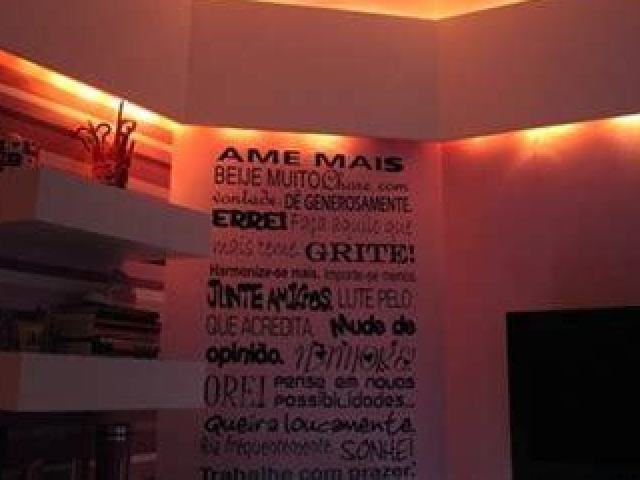 AME MAIS
BEIJE MUITO Chore com
vontade. DÊ GENEROSAMENTE.
ERRE! Faça aquilo que
mais teme. GRITE!
Harmonize-se mais. Importe-se menos
JUNTE AMIGOS. LUTE PELO
QUE ACREDITA. Mude de
opinião. NAMORE!
ORE! pense em novas
possibilidades...
Queira loucamente.
Ria frequentemente. SONHE!
Trabalhe com prazer.